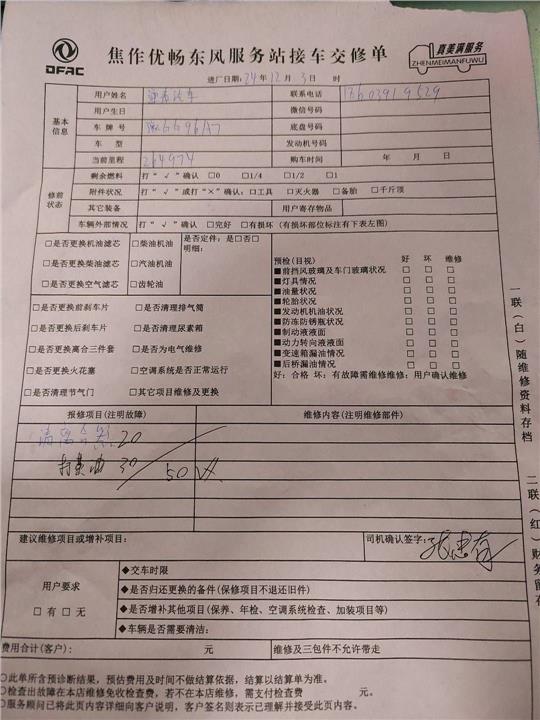 DFAC
焦作优畅东风服务站接车交修单
真美满服务
ZHENMEIMANFUWU
进厂日期：24年12月3日 时
基本信息
用户姓名 联系电话 18603919529
用户生日 微信号码
车牌号 底盘号码
车型 发动机号码
当前里程 264974 购车时间 年 月 日
修前状态
剩余燃料 打“√”确认 □0 □1/4 □1/2 □1
附件状况 打“√”或打“×”确认：□工具 □灭火器 □备胎 □千斤顶
其它装备 用户寄存物品
车辆外部情况 打“√”确认 □完好 □有损坏（有损坏部位标注有下表左图）
□是否更换机油滤芯 □柴油机油 是否定件：是□否□
明细：
□是否更换柴油滤芯 □汽油机油
□是否更换空气滤芯 □齿轮油
预检(目视) 好 坏 维修
■前挡风玻璃及车门玻璃状况 □ □ □
■灯具情况 □ □ □
■油量状况 □ □ □
■轮胎状况 □ □ □
■发动机机油状况 □ □ □
■防冻防锈瓶状况 □ □ □
■制动液液面 □ □ □
■动力转向液液面 □ □ □
■变速箱漏油情况 □ □ □
■后桥漏油情况 □ □ □
好：合格 坏：有故障需维修维修：用户确认维修
□是否更换前刹车片 □是否清理排气筒
□是否更换后刹车片 □是否清理尿素箱
□是否更换离合三件套 □是否为电气维修
□是否更换火花塞 □空调系统是否正常运行
□是否清理节气门 □其它项目维修及更换
报修项目(注明故障) 维修内容(注明维修部件)
20
打黄油 30
50
建议维修项目或增补项目： 司机确认签字：
用户要求
□有 □无
◆交车时限
◆是否归还更换的备件(保修项目不退还旧件)
◆是否增补其他项目(保养、年检、空调系统检查、加装项目等)
◆车辆是否需要清洁：
费用合计(客户)： 元 维修及三包件不允许带走
○此单所含预诊断结果，预估费用及时间不做结算依据，结算以结算单为准。
○检查出故障在本店维修免收检查费，若不在本店维修，需支付检查费 元。
○服务顾问已将此页内容详细向客户说明，客户签名则表示已理解并接受此页内容。
一联（白）随维修资料存档
二联（红）财务留存